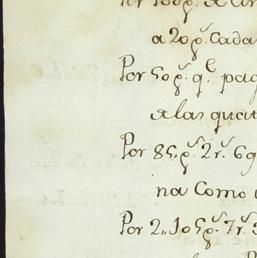 Por 100p.s
a 20p.s cada
Por 50p.s q.e pag
a las quat
Por 85p.s 2r.s 6g
na Como
Por 2,,105p.s 7r.s